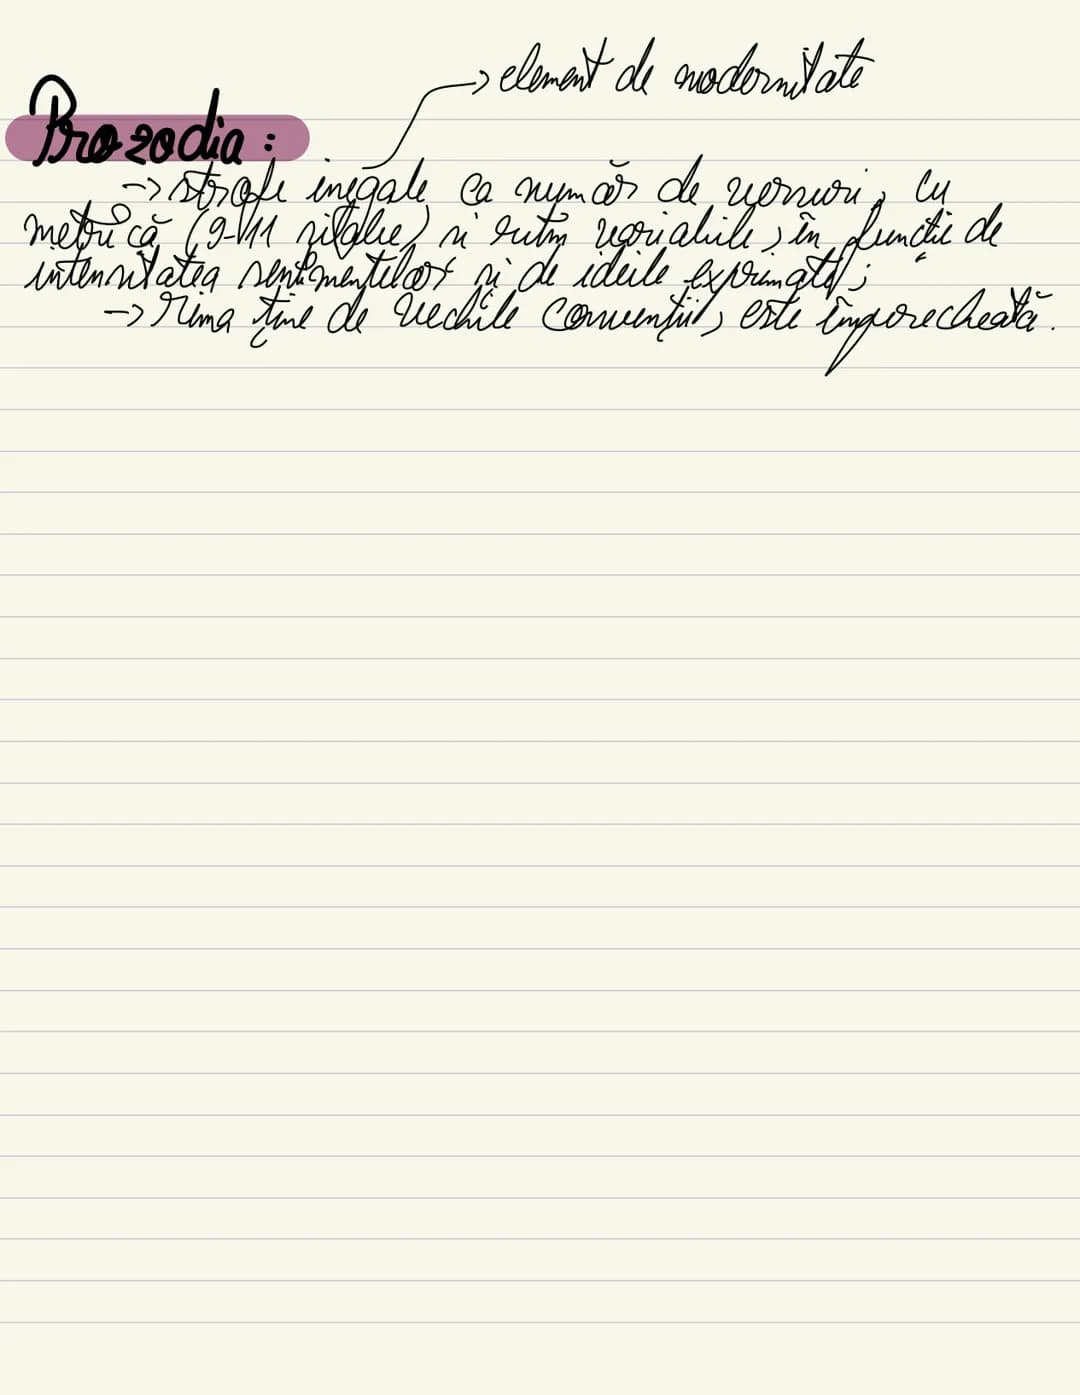 → element de modernitate
Prozodia:
→ strofe inegale ca număr de versuri, cu
metrică (9-11 silabe) si ritm variabile, în functie de
intensitatea sentimentelor si de ideile exprimate;
→ rima ține de vechile convenții, este împerecheată.